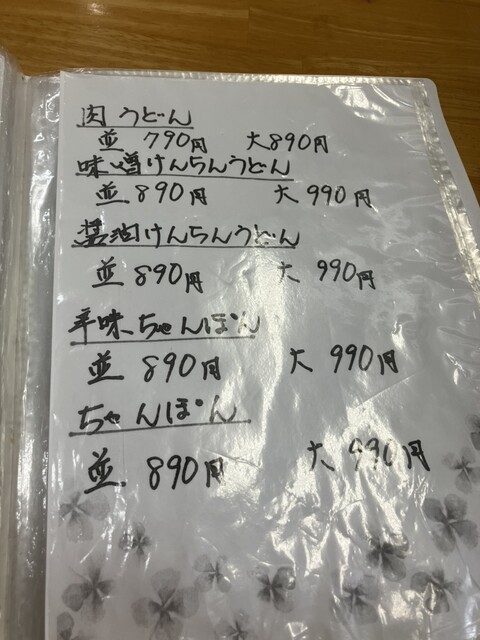 肉うどん
並 790円 大 890円
味噌けんちんうどん
並 890円 大 990円
醤油けんちんうどん
並 890円 大 990円
辛味ちゃんぽん
並 890円 大 990円
ちゃんぽん
並 890円 大 990円